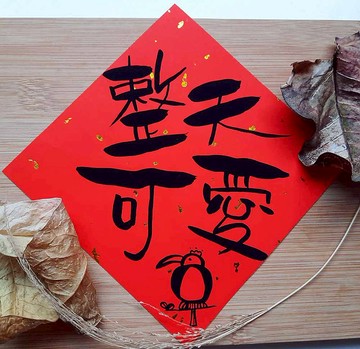 整天
可愛